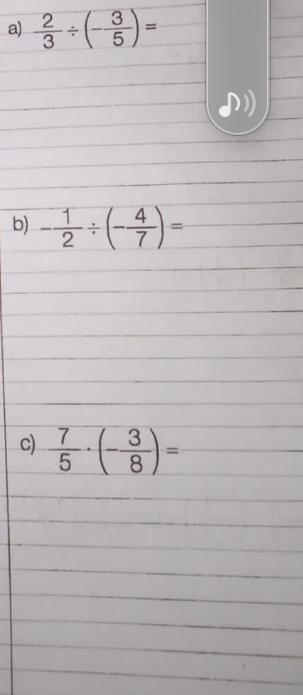 a) 2/3 ÷ (-3/5) =
b) -1/2 ÷ (-4/7) =
c) 7/5 · (-3/8) =